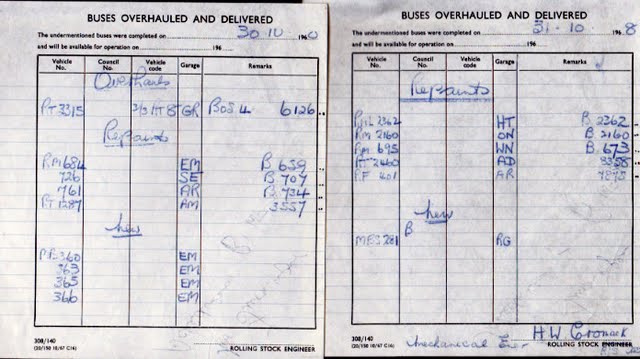 BUSES OVERHAULED AND DELIVERED
The undermentioned buses were completed on 30.10 196
and will be available for operation on 196
Vehicle No. Council No. Vehicle code Garage Remarks
Overhauls
RT 3315 3/3 RT 8 GR BOS.4 6126
Repaints
RM 684 EM B 659
726 SE B 707
761 AR B 734
RT 1287 AM 3557
New
EM
363 EM
365 EM
366 EM
308/140
(20/150 10/67 C16)
ROLLING STOCK ENGINEER
BUSES OVERHAULED AND DELIVERED
The undermentioned buses were completed on 31.10 196 8
and will be available for operation on 196
Vehicle No. Council No. Vehicle code Garage Remarks
Repaints
2362 HT B. 2362
RM 2160 ON B. 2160
RM 695 WN B. 673
RT 2460 AD 3358
RF 401 AR 7875
New
B
281 RG
308/140
(20/150 10/67 C16)
Mechanical
H W
ROLLING STOCK ENGINEER